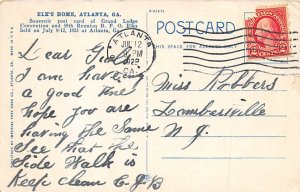 ELK'S HOME, ATLANTA, GA.
Souvenir post card of Grand Lodge
Convention and 59th Reunion B. P. O. Elks
held on July 9-12, 1923 at Atlanta, G
POSTCARD
THIS SPACE FOR ADDRESS ONLY
ATLANTA
JUL 12
PM
1923
GA.
Dear Girls
I am having
a good time
hope you are
having the same
See that the
Side Walk is
Keept clean C.J.B
Miss Robbers
Lambersville
N. J.